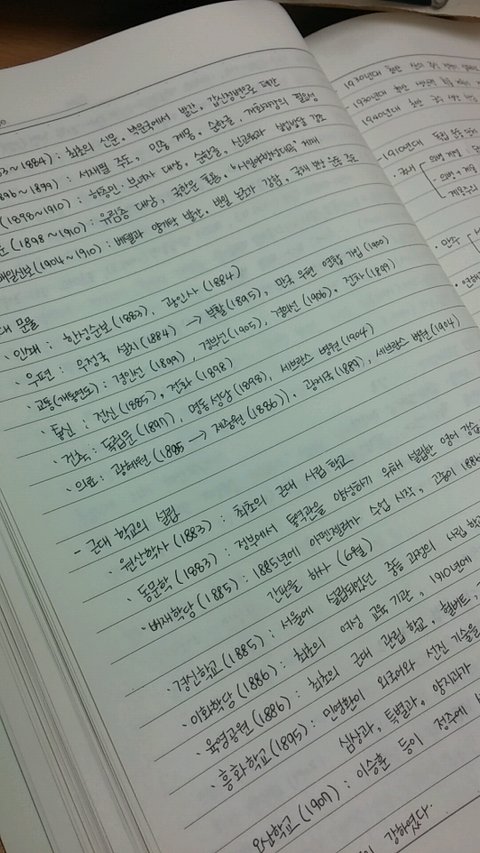 3~1884) : 최초의 신문. 박문국에서 발간, 갑신정변으로 폐간
896~1899) : 서재필 주도, 민중 계몽, 순한글, 개화사상의 필요성
(1898~1910) : 하층민·부녀자 대상, 순한글, 신교육과
(1898~1910) : 유림층 대상, 국한문 혼용, <시일야방성대곡> 게재
매일신보(1904~1910) : 베델과 양기탁 발간. 반일 논조가 강함, 국채 보상 운동 주도
대 문물
· 인쇄 : 한성순보(1883), 광인사(1884)
· 우편 : 우정국 설치(1884) → 부활(1895), 만국 우편 연합 가입(1900)
· 교통(개통연도) : 경인선(1899), 경부선(1905), 경의선(1906), 전차(1899)
· 통신 : 전신(1885), 전화(1898)
· 건축 : 독립문(1897), 명동성당(1898), 세브란스 병원(1904)
· 의료 : 광혜원(1885 → 제중원(1886)), 광제국(1889), 세브란스 병원(1904)
- 근대 학교의 설립
· 원산학사(1883) : 최초의 근대 사립 학교
· 동문학(1883) : 정부에서 통역관을 양성하기 위해 설립한 영어 강습
· 배재학당(1885) : 1885년에 아펜젤러가 수업 시작, 고종이 1886
간판을 하사 (6월)
· 경신학교(1885) : 서울에 설립되었던 중등 과정의 사립 학
· 이화학당(1886) : 최초의 여성 교육 기관, 1910년에
· 육영공원(1886) : 최초의 근대 관립 학교, 헐버트,
· 흥화학교(1895) : 민영환이 외국어와 선진 기술을
심상과, 특별과, 양지과가
오산학교(1907) : 이승훈 등이 정주에
강하였다.
1930년대
1930년대
1940년대
- 1910년대 독립
· 국내
· 만주